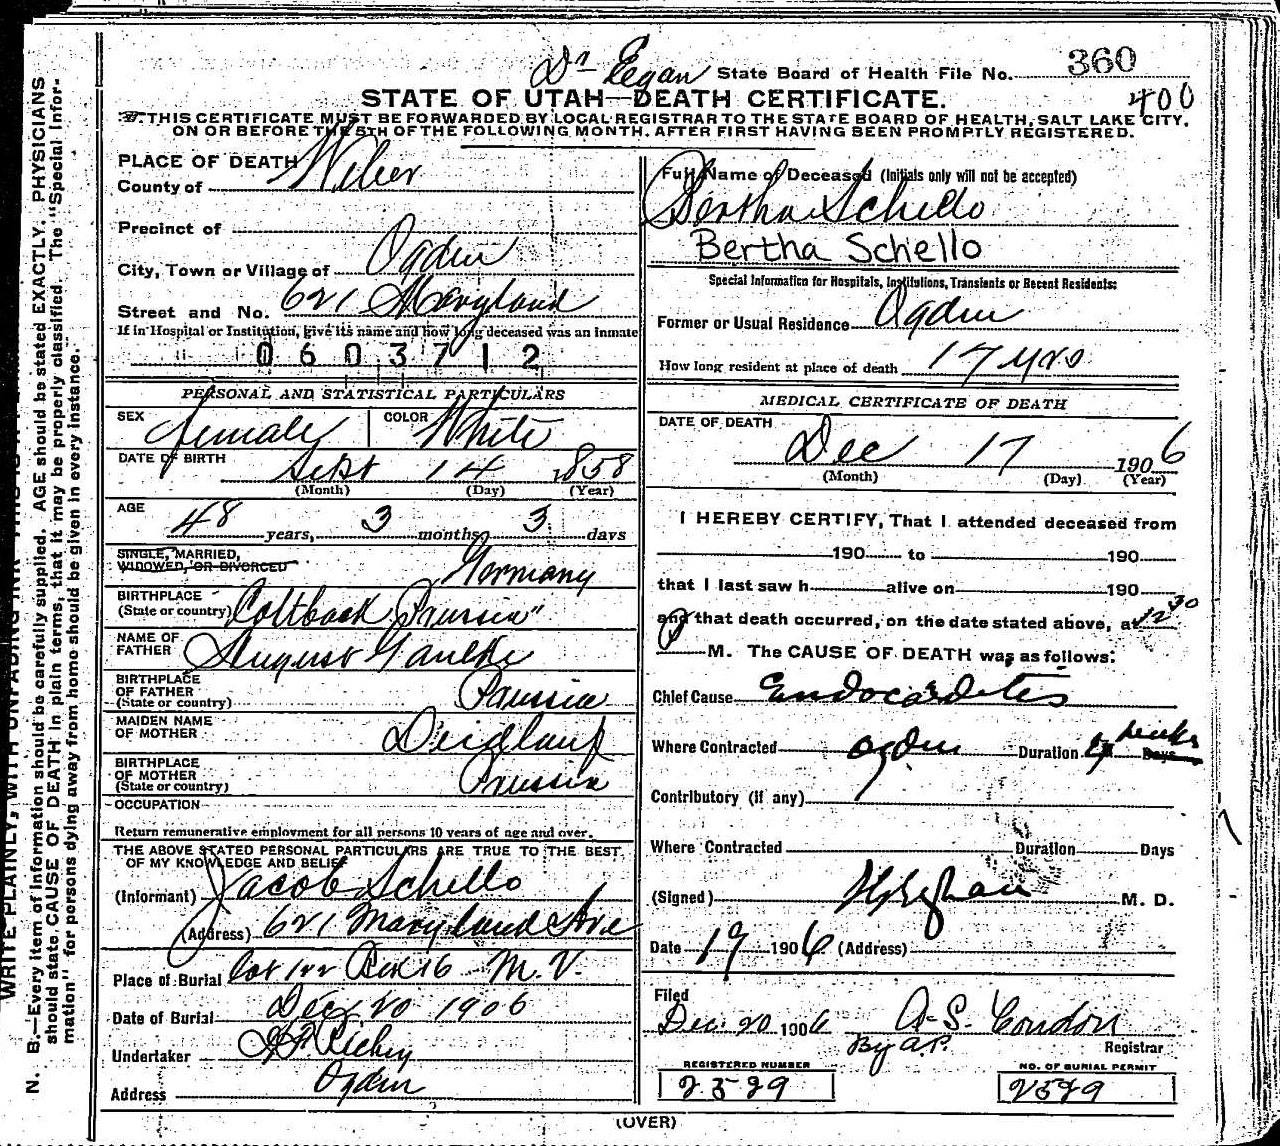 Dr Egan State Board of Health File No. 360
400
STATE OF UTAH—DEATH CERTIFICATE.
THIS CERTIFICATE MUST BE FORWARDED BY LOCAL REGISTRAR TO THE STATE BOARD OF HEALTH, SALT LAKE CITY,
ON OR BEFORE THE 5TH OF THE FOLLOWING MONTH. AFTER FIRST HAVING BEEN PROMPTLY REGISTERED.
PLACE OF DEATH
County of Weber
Precinct of
City, Town or Village of Ogden
Street and No. 621 Maryland
If in Hospital or Institution, give its name and how long deceased was an inmate
0603712
PERSONAL AND STATISTICAL PARTICULARS
SEX female COLOR White
DATE OF BIRTH Sept 14 1858
(Month) (Day) (Year)
AGE
48 years, 3 months, 3 days
SINGLE, MARRIED,
WIDOWED, OR DIVORCED
Germany
BIRTHPLACE
(State or country) Prussia"
NAME OF
FATHER August
BIRTHPLACE
OF FATHER
(State or country) Prussia
MAIDEN NAME
OF MOTHER
BIRTHPLACE
OF MOTHER
(State or country) Prussia
OCCUPATION
Return remunerative employment for all persons 10 years of age and over.
THE ABOVE STATED PERSONAL PARTICULARS ARE TRUE TO THE BEST
OF MY KNOWLEDGE AND BELIEF
(Informant) Jacob Schello
(Address) 621 Maryland Ave
Place of Burial Lot 16 M. V.
Date of Burial Dec 20 1906
Undertaker Richey
Address Ogden
Full Name of Deceased (Initials only will not be accepted)
Bertha Schello
Bertha Schello
Special Information for Hospitals, Institutions, Transients or Recent Residents:
Former or Usual Residence Ogden
How long resident at place of death 17 yrs
MEDICAL CERTIFICATE OF DEATH
DATE OF DEATH
Dec 17 1906
(Month) (Day) (Year)
I HEREBY CERTIFY, That I attended deceased from
190 to 190
that I last saw h alive on 190
and that death occurred, on the date stated above, at 12 30
P M. The CAUSE OF DEATH was as follows:
Chief Cause Endocardites
Where Contracted Ogden Duration weeks Days
Contributory (if any)
Where Contracted Duration Days
(Signed) M. D.
Date 19 1906 (Address)
Filed
Dec. 20 1906 A. S. Condon
By A.P. Registrar
REGISTERED NUMBER
2529
NO. OF BURIAL PERMIT
2529
(OVER)
WRITE PLAINLY, WITH UNFADING INK
N. B.—Every item of information should be carefully supplied. AGE should be stated EXACTLY. PHYSICIANS
should state CAUSE OF DEATH in plain terms, that it may be properly classified. The "Special Infor-
mation" for persons dying away from home should be given in every instance.